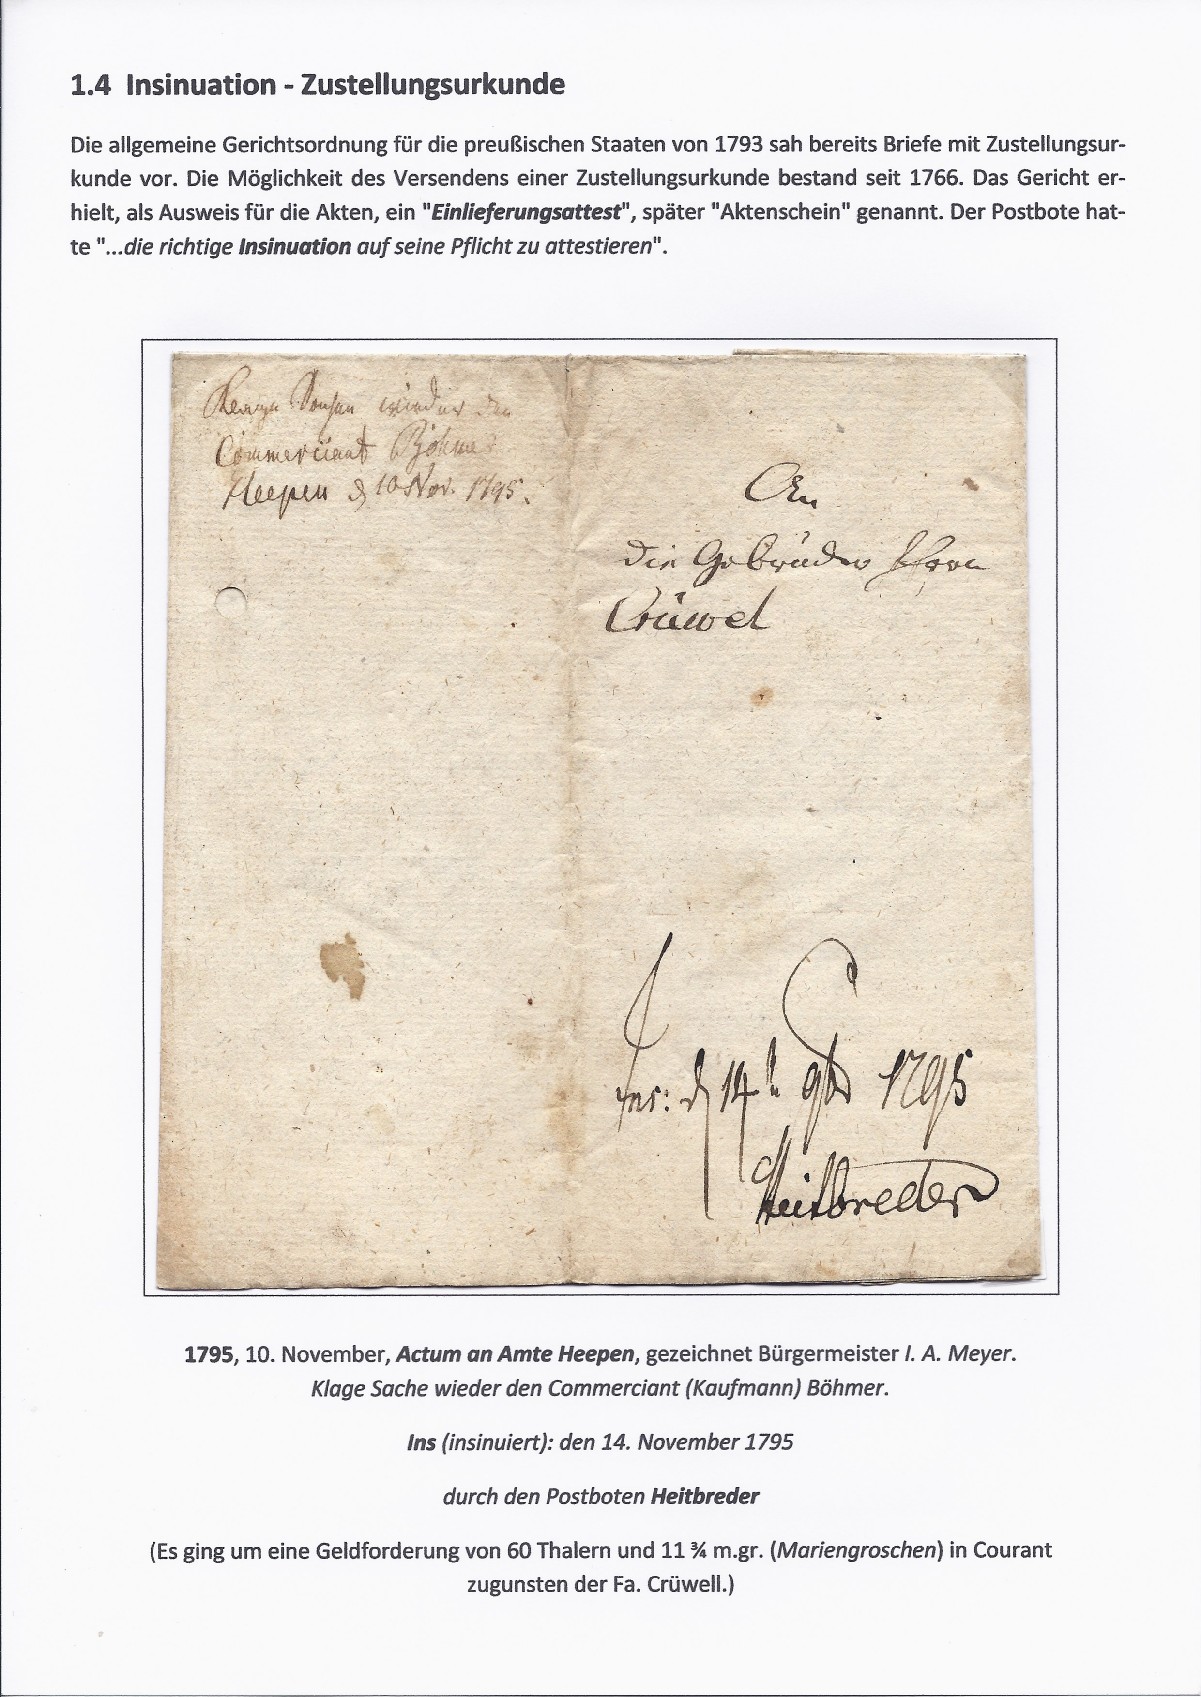 1.4 Insinuation - Zustellungsurkunde
Die allgemeine Gerichtsordnung für die preußischen Staaten von 1793 sah bereits Briefe mit Zustellungsur-
kunde vor. Die Möglichkeit des Versendens einer Zustellungsurkunde bestand seit 1766. Das Gericht er-
hielt, als Ausweis für die Akten, ein "Einlieferungsattest", später "Aktenschein" genannt. Der Postbote hat-
te "...die richtige Insinuation auf seine Pflicht zu attestieren".
wieder den
Commerciant Böhmer
Heepen d 10 Nov. 1795.
An
die Gebrüder Herrn
Crüwel
Ins: d 14 9br 1795
Heitbreder
1795, 10. November, Actum an Amte Heepen, gezeichnet Bürgermeister I. A. Meyer.
Klage Sache wieder den Commerciant (Kaufmann) Böhmer.
Ins (insinuiert): den 14. November 1795
durch den Postboten Heitbreder
(Es ging um eine Geldforderung von 60 Thalern und 11 ¾ m.gr. (Mariengroschen) in Courant
zugunsten der Fa. Crüwell.)